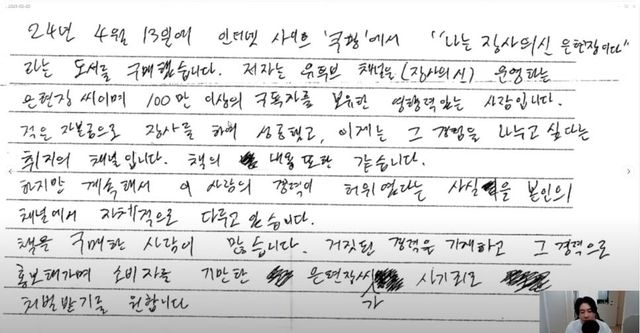 24년 4월 13일에 인터넷 사이트 '쿠팡'에서 "나는 장사의신 은현장이다"
라는 도서를 구매했습니다. 저자는 유튜브 채널을(장사의신) 운영하는
은현장 씨이며 100만 이상의 구독자를 보유한 영향력있는 사람입니다.
적은 자본금으로 장사를 하여 성공했고, 이제는 그 경험을 나누고 싶다는
취지의 채널입니다. 책의 내용 또한 같습니다.
하지만 계속해서 이 사람의 경력이 허위였다는 사실을 본인의
채널에서 자체적으로 다루고 있습니다.
책을 구매한 사람이 많습니다. 거짓된 경력을 기재하고 그 경력으로
홍보해가며 소비자를 기만한 은현장씨가 사기죄로
처벌받기를 원합니다